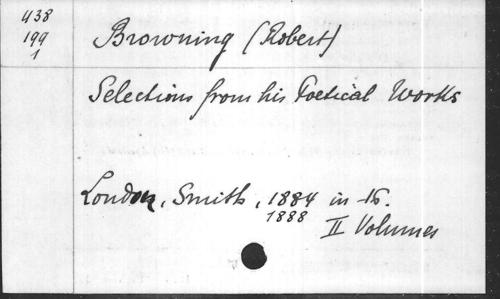 438
199
1
Browning (Robert)
Selections from his Poetical Works
London, Smith, 1884 in-16.
1888
II Volumes